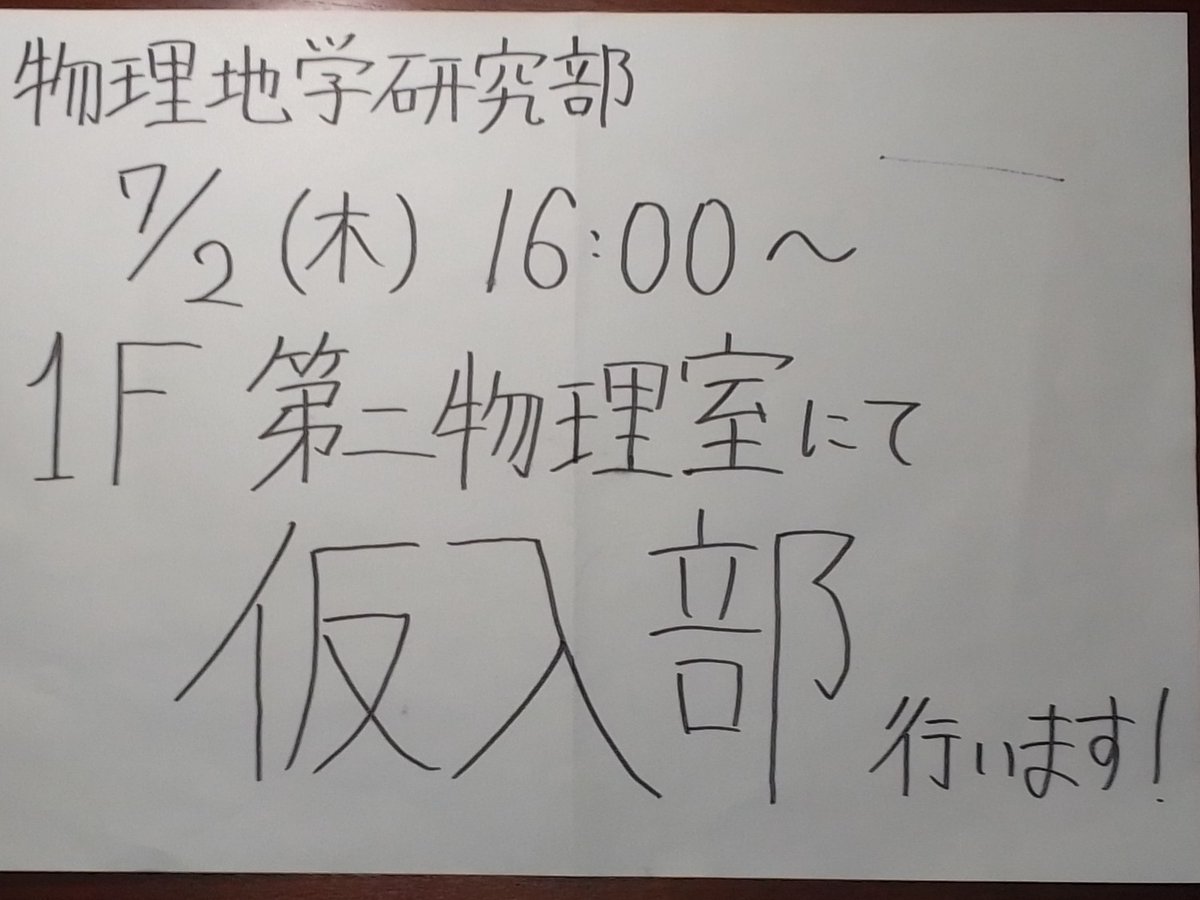 物理地学研究部
7/2 (木) 16:00～
1F 第二物理室にて
仮入部 行います!